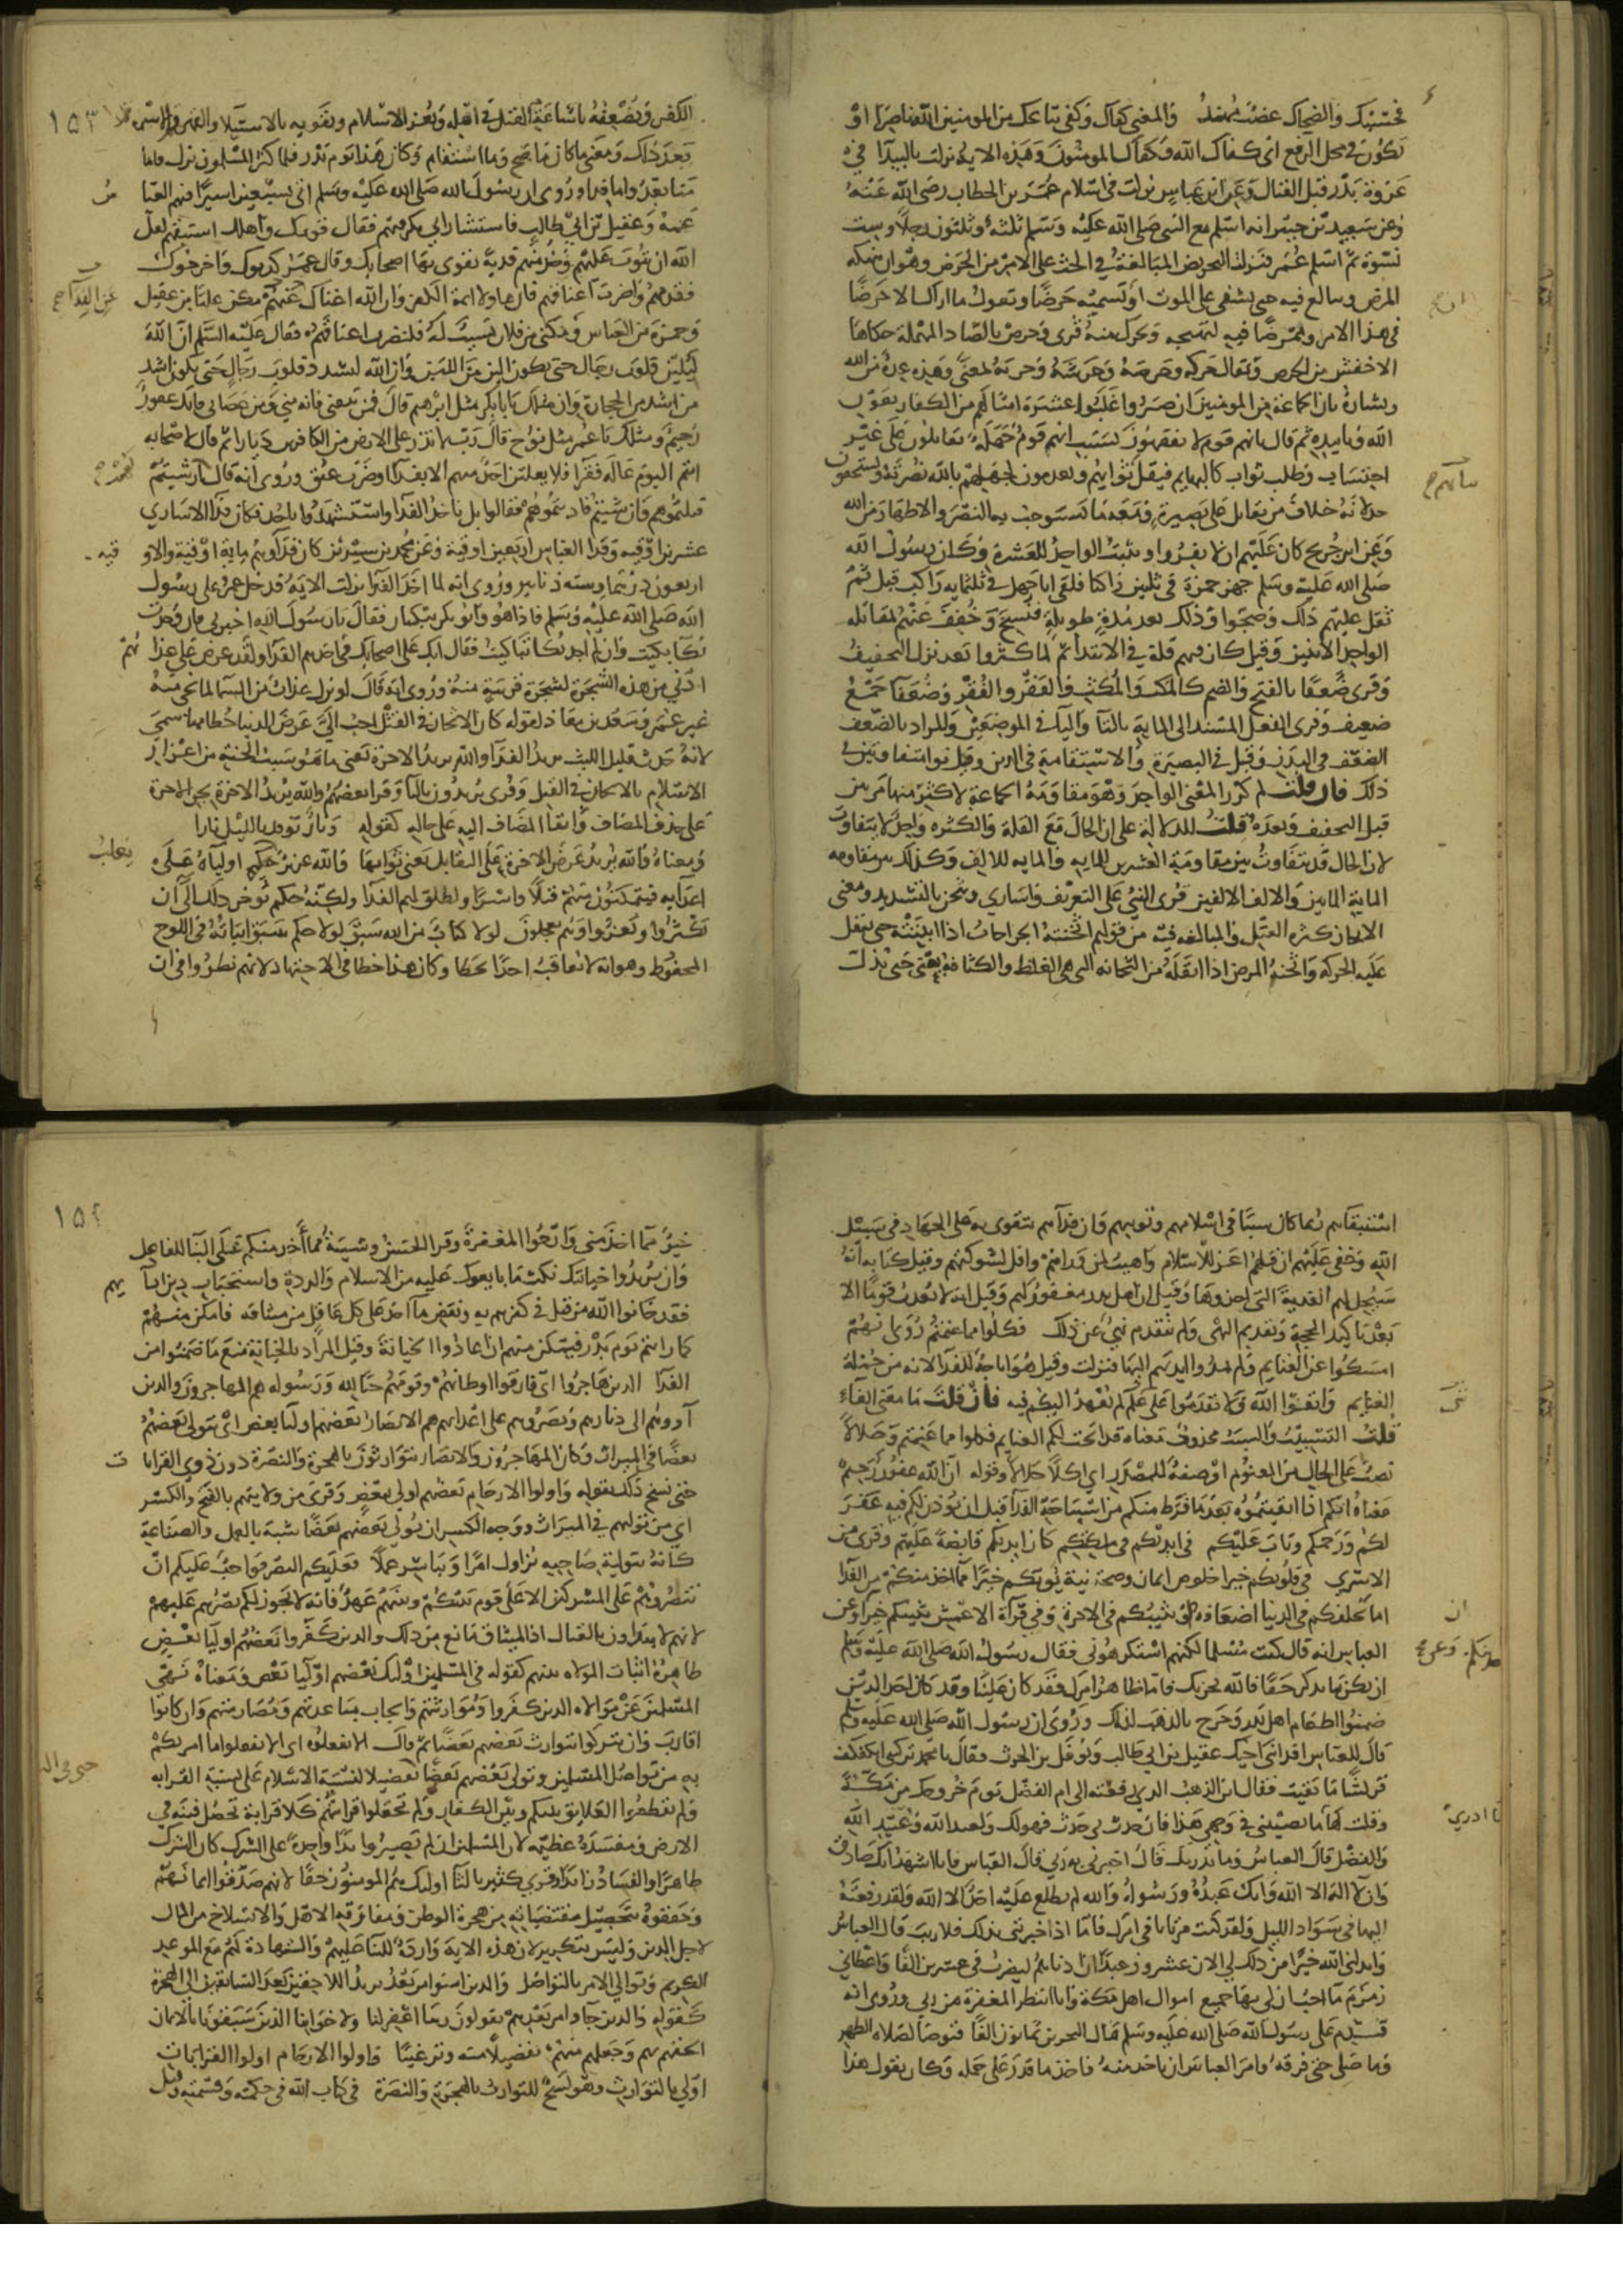 فحسبك والضحاك عضب مهند والمعنى كفاك وكفى تباعك من المؤمنين الله ناصرا او
تكون في محل الرفع اى كفاك الله وكفاك المؤمنون وهذه الاية نزلت بالبيدآ في
غزوة بدر قبل القتال وعن ابن عباس نزلت في اسلام عمر بن الخطاب رضى الله عنه
وعن سعيد بن جبير انه اسلم مع النبى صلى الله عليه وسلم ثلثه وثلثون رجلا وست
نسوة ثم اسلم عمر فنزلت التحريض المبالغة في الحث على الامر من الحرض وهو ان ينهكه
المرض ويبالغ فيه حتى يشفى على الموت او تسميه حرضا وتقول ما اراك الا حرضا
في هذا الامر وممرضا فيه ليهيجه ويحرك منه قرى وحرص بالصاد المهملة حكاها
الاخفش من الحرص ويقال حركه وحرضه وحرشه وحربه بمعنى وهذه عدة من الله
وبشارة بان الجماعة من المؤمنين ان صبروا غلبوا عشرة امثالهم من الكفار بعون
الله وتاييده ثم قال بانهم قوم لا يفقهون بسبب انهم قوم جهلة يقاتلون على غير
احتساب وطلب ثواب كالبهايم فيقل ثباتهم ويعدمون لجهلهم بالله نصرته ويستحقون
خذلانه خلاف من يقاتل على بصيرة ومعه ما يستوجب به النصر والاظهار من الله
وعن ابن جريج كان عليهم ان لا يفروا ويثبت الواحد للعشرة وكان رسول الله
صلى الله عليه وسلم جهز حمزة في ثلثين راكبا فلقى ابا جهل في ثلثمايه راكب قيل ثم
ثقل عليهم ذلك وضجوا وذلك بعد مدة طويلة فنسخ وخفف عنهم لمقاتله
الواحد الاثنين وقيل كان فيهم قلة في الابتدآ ثم لما كثروا بعد نزل التخفيف
وقرى ضعفا بالفتح والضم كالمكث والمكث والفقر والفقر وضعفآ جمع
ضعيف وقرى الفعل المسند الى الماية بالتآ واليآ في الموضعين والمراد بالضعف
الضعف في البدن وقيل في البصيرة والاستقامة في الدين وكانوا متفاوتين في
ذلك فان قلت لم كرر المعنى الواحد وهو مقاومة الجماعة لاكثر منها مرتين
قبل التخفيف وبعده قلت للدلالة على ان الحال مع القلة والكثره واحدة لا تتفاوت
لان الحال قد تتفاوت بين مقاومة العشرين المايه والمايه للالف وكذلك بين مقاومه
الماية الماتين والالف الالفين قرى النبي على التعريف واسارى ويثخن بالتشديد ومعنى
الاثخان كثرة القتل والمبالغه فيه من قولهم اثخنته الجراحات اذا اثبتته حتى يثقل
عليه الحركه واثخنه المرض اذا اثقله من الثخانه التى هي الغلظ والكثافه يعنى حتى يذل
١٥٣
الكفر ويضعفه باشاعة القتل في اهله ويعز الاسلام ويقويه بالاستيلا والقهر والاسر ثم
بعد ذلك ومعنى ما كان ما صح وما استقام وكان هذا يوم بدر فلما كثر المسلمون نزل فاما
منا بعد واما فدا وروى ان رسول الله صلى الله عليه وسلم اتى بسبعين اسيرا فيهم العباس
عمه وعقيل بن ابي طالب فاستشار ابا بكر فيهم فقال قومك واهلك استبقهم لعل
الله ان يتوب عليهم وخذ منهم فدية تقوى بها اصحابك وقال عمر كذبوك واخرجوك
فقدمهم واضرب اعناقهم فان هاولا ايمة الكفر وان الله اغناك عن الفدآ مكن عليا من عقيل
وحمزة من العباس ومكني من فلان لنسيب له فلنضرب اعناقهم فقال عليه السلم ان الله
ليلين قلوب رجال حتى يكون الين من اللبن وان الله ليشدد قلوب رجال حتى يكون اشد
من اشد من الحجارة وان مثلك يا ابا بكر مثل ابرهيم قال فمن تبعني فانه مني ومن عصاني فانك غفور
رحيم ومثلك يا عمر مثل نوح قال رب لا تذر على الارض من الكافرين ديارا ثم قال لاصحابه
انتم اليوم عالة فقرا فلا يفلتن احد منهم الا بفدآ او ضرب عنق وروى انه قال ان شيتم
قتلتموهم وان شيتم فاديتموهم فقالوا بل ناخذ الفدآ واستشهدوا باحد فكان فدآ الاسارى
عشرين اوقيه وفدا العباس اربعين اوقية وعن محمد بن سيرين كان فدآوهم ماية اوقية والاوقيه
اربعون درهما وسته دنانير وروى انه لما اخذ الفدآ نزلت الاية فدخل عمر على رسول
الله صلى الله عليه وسلم فاذا هو وابو بكر يبكيان فقال يا رسول الله اخبرنى فان وجدت
بكآ بكيت وان لم اجد بكا تباكيت فقال ابكى على اصحابك في اخذهم الفدآ ولقد عرض على عذابهم
ادنى من هذه الشجرة لشجرة قريبة منه وروى انه قال لو نزل عذاب من السما لما نجى منه
غير عمر وسعد بن معاذ لقوله كان الاثخان في القتل احب الي عرض الدنيا حطامها سمى
لانه حدث قليل اللبث يريد الفدآ والله يريد الاخرة يعنى ما هو سبب الجنة من اعزاز
الاسلام بالاثخان في القتل وقرى يريدون باليآ وقرا بعضهم والله يريد الاخرة بجر الاخرة
على حذف المضاف وابقآ المضاف اليه على حاله كقوله ونار توقد بالليل نارا
ومعناه والله يريد عرض الاخرة على التقابل يعنى ثوابها والله عزيز حكيم اوليآه على
اعدآيه فيتمكنون منهم قتلا واسرا ويطلق لهم الفدآ ولكنه حكم يوخر ذلك الى ان
يكثروا ويعزوا وهم يعجلون لولا كتاب من الله سبق لولا حكم سبق اثباته في اللوح
المحفوظ وهو انه لا يعاقب احدا بخطا وكان هذا خطا في الاجتهاد لانهم نظروا في ان
١٥٤
استبقآهم ربما كان سببا في اسلامهم وتوبتهم وان فدآهم يتقوى به على الجهاد في سبيل
الله وخفى عليهم ان قتلهم اعز للاسلام واهيب لمن ورآهم وافل لشوكتهم وقيل كتابه انه
سيحل لهم الفدية التى اخذوها وقيل ان اهل بدر مغفور لهم وقيل انه لا يعذب قوما الا
بعد تاكيد الحجة وتقديم النهى ولم يتقدم نهى عن ذلك فكلوا مما غنمتم روى انهم
امسكوا عن الغنايم ولم يمدوا ايديهم اليها فنزلت وقيل هو اباحة للفدآ لانه من جملة
الغنايم واتقوا الله ولا تقدموا على شىء لم يعهد اليكم فيه فان قلت ما معنى الفآء
قلت التسبيب والسبب محذوف معناه قد ابحت لكم الغنايم فكلوا مما غنمتم وحلالا
نصب على الحال من المغنوم او صفة للمصدر اي اكلا حلالا وقوله ان الله غفور رحيم
معناه انكم اذا اتقيتموه بعد ما فرط منكم من استباحة الفدآ قبل ان يوذن لكم فيه غفر
لكم ورحمكم وتاب عليكم في ايديكم في ملكتكم كان ايديكم قابضة عليهم وقرى من
الاسرى في قلوبكم خيرا خلوص ايمان وصحة نية يوتكم خيرا مما اخذ منكم من الفدآ
اما ان يخلفكم في الدنيا اضعافه او يثيبكم في الاخرة وفي قرآة الاعمش يثيبكم خيرا وعن
العباس انه قال كنت مسلما لكنهم استكرهوني فقال رسول الله صلى الله عليه وسلم
ان يكن ما تذكر حقا فالله يجزيك فاما ظاهر امرك فقد كان علينا وقد كان احد الذين
ضمنوا اطعام اهل بدر وخرج بالذهب لذلك وروى ان رسول الله صلى الله عليه وسلم
قال للعباس افد ابنى اخيك عقيل بن ابي طالب ونوفل بن الحرث فقال يا محمد تركتنى اتكفف
قريشا ما بقيت فقال اين الذهب الذى دفعته الى ام الفضل يوم خروجك من مكة
وقلت لها ما ادرى ما يصيبني في وجهي هذا فان حدث بي حدث فهو لك ولعبد الله وعبيد الله
والفضل قال العباس وما يدريك قال اخبرني به ربي قال العباس فانا اشهد انك صادق
وان لا اله الا الله وانك عبده ورسوله والله لم يطلع عليه احد الا الله ولقد دفعته
اليها في سواد الليل ولقد كنت مرتابا في امرك فاما اذا اخبرتني بذلك فلا ريب قال العباس
وابدلنى الله خيرا من ذلك لي الان عشرون عبدا ان ادناهم ليضرب في عشرين الفا واعطاني
زمزم ما احب ان لي بها جميع اموال اهل مكة وانا انتظر المغفرة من ربي وروى انه
قدم على رسول الله صلى الله عليه وسلم مال البحرين ثمانون الفا فتوضا لصلاه الظهر
وما صلى حتى فرقه وامر العباس ان ياخذ منه فاخذ ما قدر على حمله وكان يقول هذا
خير مما اخذ منى وارجوا المغفرة وقرا الحسن وشيبة مما أخذ منكم على البنا للفاعل
وان يريدوا خيانتك نكث ما بايعوك عليه من الاسلام والردة واستحباب دين ابآيهم
فقد خانوا الله من قبل في كفرهم به ونقض ما اخذ على كل عاقل من ميثاقه فامكن منهم
كما رايتم يوم بدر فيمكن منهم ان عادوا الخيانة وقيل المراد بالخيانة منع ما ضمنوا من
الفدآ الذين هاجروا اى فارقوا اوطانهم وقومهم حبا لله ورسوله هم المهاجرون والذين
آووهم الى ديارهم ونصروهم على اعدايهم هم الانصار بعضهم اوليآ بعض اى يتولى بعضهم
بعضا في الميراث وكان المهاجرون والانصار يتوارثون بالهجرة والنصرة دون ذوي القرابات
حتى نسخ ذلك بقوله واولوا الارحام بعضهم اولى ببعض وقرى من ولايتهم بالفتح والكسر
اي من توليهم في الميراث ووجه الكسر ان تولي بعضهم بعضا شبه بالعمل والصناعة
كانه بتوليه صاحبه يزاول امرا ويباشر عملا فعليكم النصر فواجب عليكم ان
تنصروهم على المشركين الا على قوم بينكم وبينهم عهد فانه لا يجوز لكم نصرهم عليهم
لانهم لا يبتداون بالقتال اذ الميثاق مانع من ذلك والذين كفروا بعضهم اوليا بعض
ظاهره اثبات الموالاه بينهم كقوله في المسلمين اوليك بعضهم اوليا بعض ومعناه نهى
المسلمين عن موالاه الذين كفروا وموارثتهم وايجاب مباعدتهم ومصارمتهم وان كانوا
اقارب وان يتركوا يتوارث بعضهم بعضا ثم قال الا تفعلوه اى الا تفعلوا ما امرتكم
به من تواصل المسلمين وتولى بعضهم بعضا حتى في التوارث تفضيلا لنسبة الاسلام على نسبة القرابه
ولم تقطعوا العلايق بينكم وبين الكفار ولم تجعلوا قرابتهم كلا قرابة تحصل فتنة في
الارض ومفسدة عظيمه لان المسلمين ان لم يصيروا يدا واحدة على الشرك كان الشرك
ظاهرا والفساد زايدا وقرى كثير بالثآ اوليك هم المومنون حقا لانهم صدقوا ايمانهم
وحققوه بتحصيل مقتضياته من هجرة الوطن ومفارقة الاهل والانسلاخ من المال
لاجل الدين وليس بتكرير لان هذه الاية واردة للثنآ عليهم والشهادة لهم مع الموعد
الكريم والاولى للامر بالتواصل والذين امنوا من بعد يريد اللاحقين بعد السابقين الى الهجرة
كقوله والذين جآوا من بعدهم يقولون ربنا اغفر لنا ولاخواننا الذين سبقونا بالايمان
الحقهم بهم وجعلهم منهم تفضيلا منه وترغيبا واولوا الارحام اولوا القرابات
اولى بالتوارث وهو نسخ للتوارث بالهجرة والنصرة في كتاب الله في حكمه وقسمته وقيل